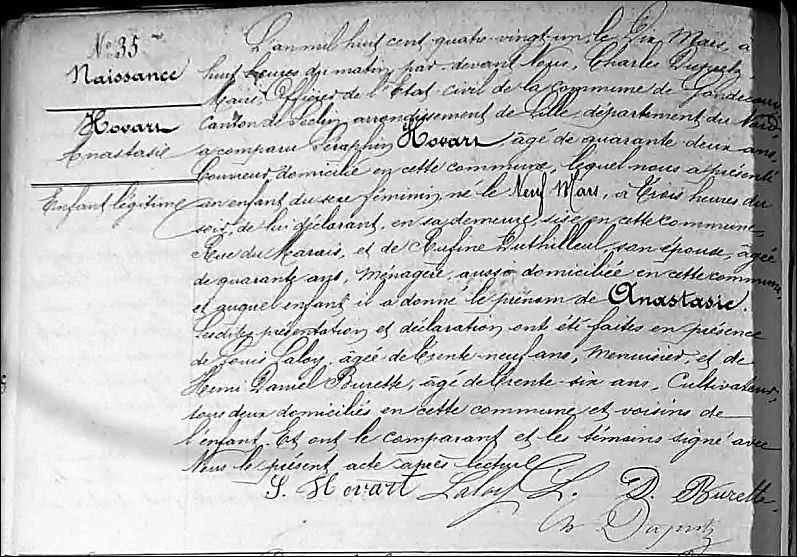 N° 35
Naissance
Hovart
Anastasie
Enfant légitime
L'an mil huit cent quatre-vingt-un, le Dix Mars, à
huit heures du matin, par-devant Nous, Charles
Maire, Officier de l'Etat civil de la commune de Gondecourt
Canton de Seclin, arrondissement de Lille, département du Nord
a comparu Séraphin Hovart âgé de quarante deux ans,
Couvreur, domicilié en cette commune, lequel nous a présenté
un enfant du sexe féminin, né le Neuf Mars, à Trois heures du
soir, de lui déclarant, en sa demeure, sise en cette commune,
Rue du Marais, et de Rufine Duthilleul son épouse, âgée
de quarante ans, Ménagère, aussi domiciliée en cette commune,
et auquel enfant il a donné le prénom de Anastasie.
Lesdites présentation et déclaration ont été faites en présence
de Louis Laloy, âgé de trente-neuf ans, Menuisier et de
Henri Daniel Burette, âgé de trente-six ans, Cultivateur,
tous deux domiciliés en cette commune et voisins de
l'enfant. Et ont le comparant et les témoins signé avec
Nous le présent acte après lecture
S. Hovart Laloy L. D. Burette